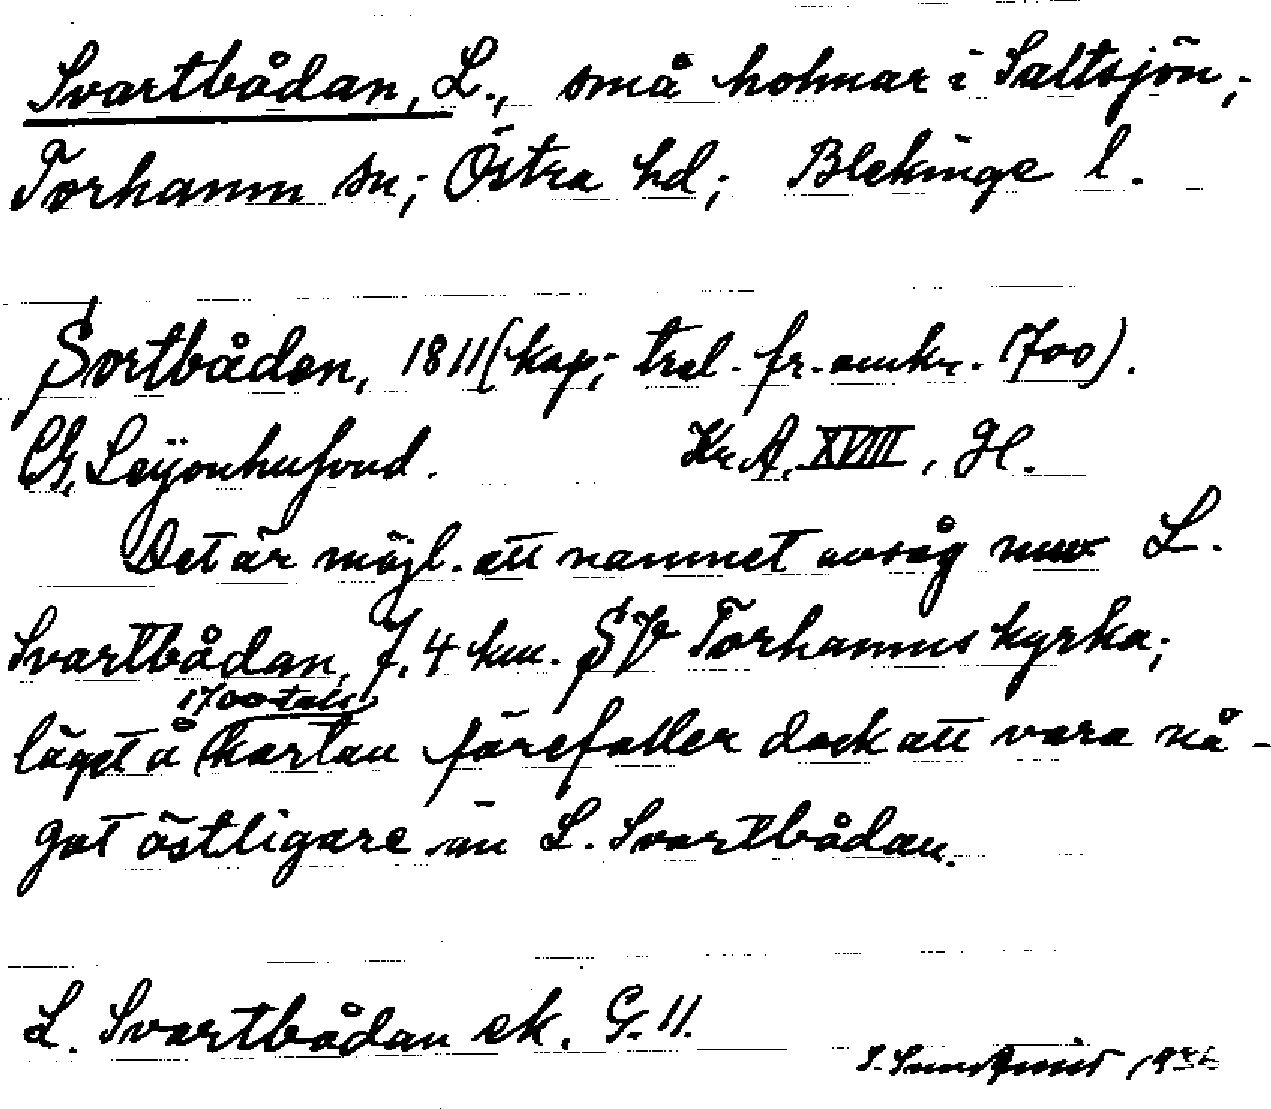 Svartbådan, L., små holmar i Saltsjön;
Torhamn sn; Östra hd; Blekinge l.
Sortbåden, 1811 (kop; trol. fr. omkr. 1700).
Ch. Leÿonhufvud. Kr.A. XVIII, H.
Det är möjl. att namnet avsåg nuv L.
Svartbådan, f. 4 km. SV Torhamns kyrka;
1700-tals
läget å kartan förefaller dock att vara nå-
got östligare än L. Svartbådan.
L. Svartbådan ek. G. 11.